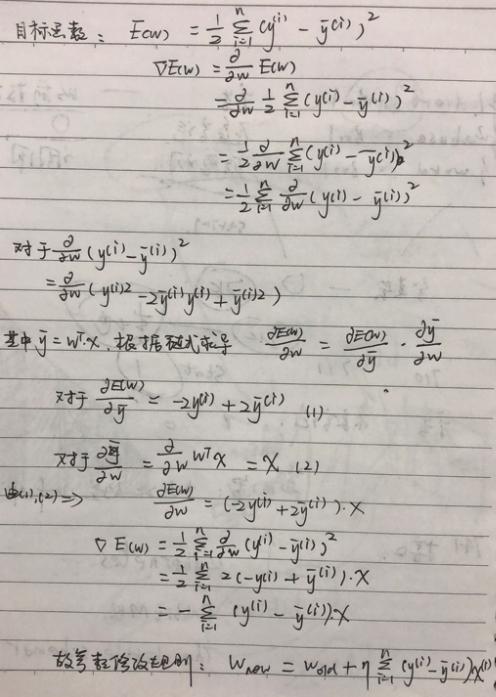 目标函数: E(w) = 1/2 Σ_{i=1}^{n} (y^{(i)} - ȳ^{(i)})²
∇E(w) = ∂/∂w E(w)
= ∂/∂w 1/2 Σ_{i=1}^{n} (y^{(i)} - ȳ^{(i)})²
= 1/2 ∂/∂w Σ_{i=1}^{n} (y^{(i)} - ȳ^{(i)})²
= 1/2 Σ_{i=1}^{n} ∂/∂w (y^{(i)} - ȳ^{(i)})²
对于 ∂/∂w (y^{(i)} - ȳ^{(i)})²
= ∂/∂w (y^{(i)2} - 2ȳ^{(i)}y^{(i)} + ȳ^{(i)2})
其中 ȳ = wᵀ·x, 根据链式求导 ∂E(w)/∂w = ∂E(w)/∂ȳ · ∂ȳ/∂w
对于 ∂E(w)/∂ȳ = -2y^{(i)} + 2ȳ^{(i)} (1)
对于 ∂ȳ/∂w = ∂/∂w wᵀx = x (2)
由(1),(2) => ∂E(w)/∂w = (-2y^{(i)} + 2ȳ^{(i)})·x
∇E(w) = 1/2 Σ_{i=1}^{n} ∂/∂w (y^{(i)} - ȳ^{(i)})²
= 1/2 Σ_{i=1}^{n} 2(-y^{(i)} + ȳ^{(i)})·x
= - Σ_{i=1}^{n} (y^{(i)} - ȳ^{(i)})·x
故参数修改规则: w_new = w_old + η Σ_{i=1}^{n} (y^{(i)} - ȳ^{(i)})x^{(i)}